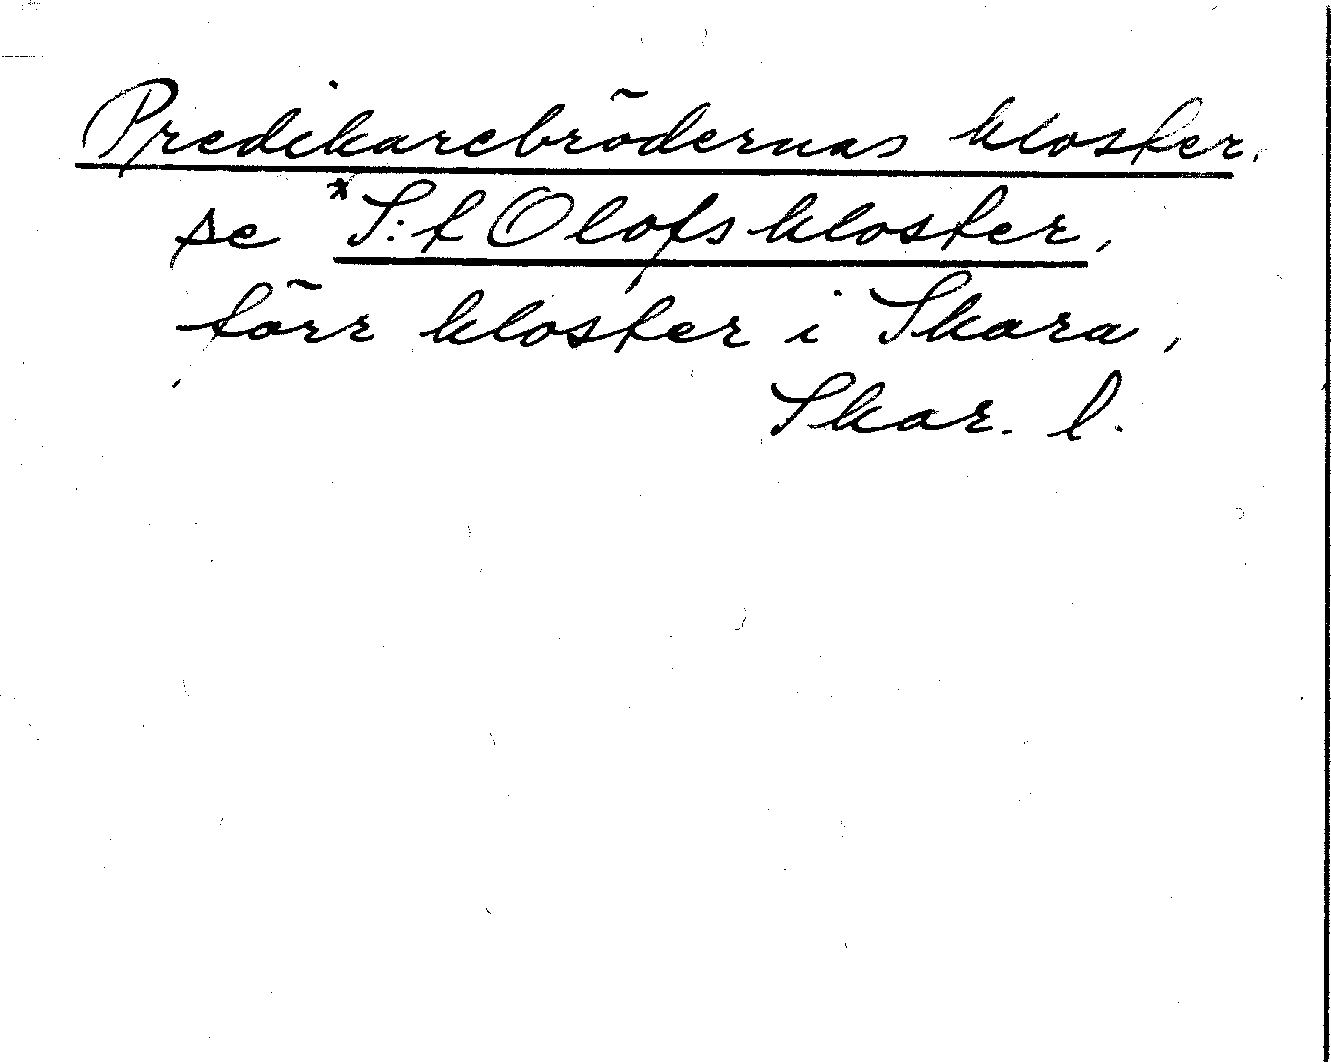 Predikarebrödernas kloster,
se *S:t Olofs kloster,
förr kloster i Skara,
Skar. l.